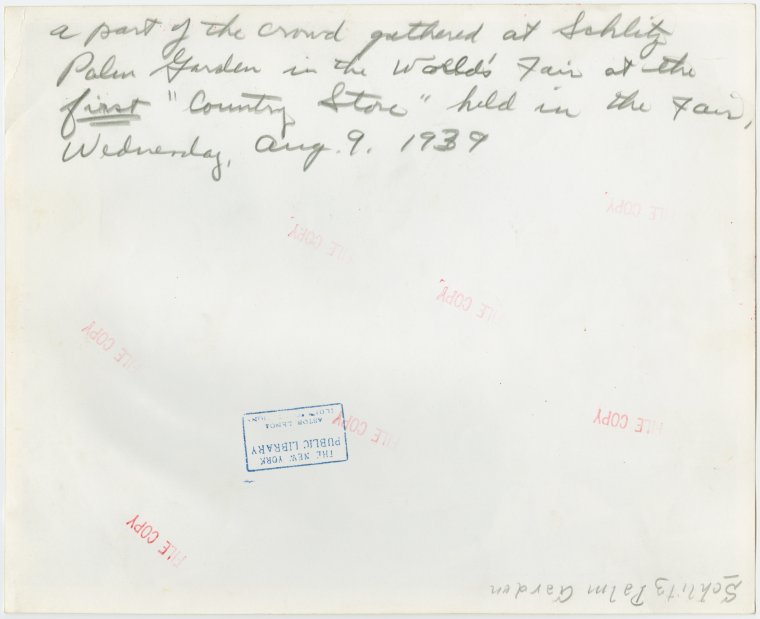 a part of the crowd gathered at Schlitz
Palm Garden in the World's Fair at the
first "Country Store" held in the Fair,
Wednesday, Aug. 9. 1939
FILE COPY
FILE COPY
FILE COPY
FILE COPY
FILE COPY
FILE COPY
THE NEW YORK
PUBLIC LIBRARY
ASTOR LENOX
FILE COPY
Schlitz Palm Garden